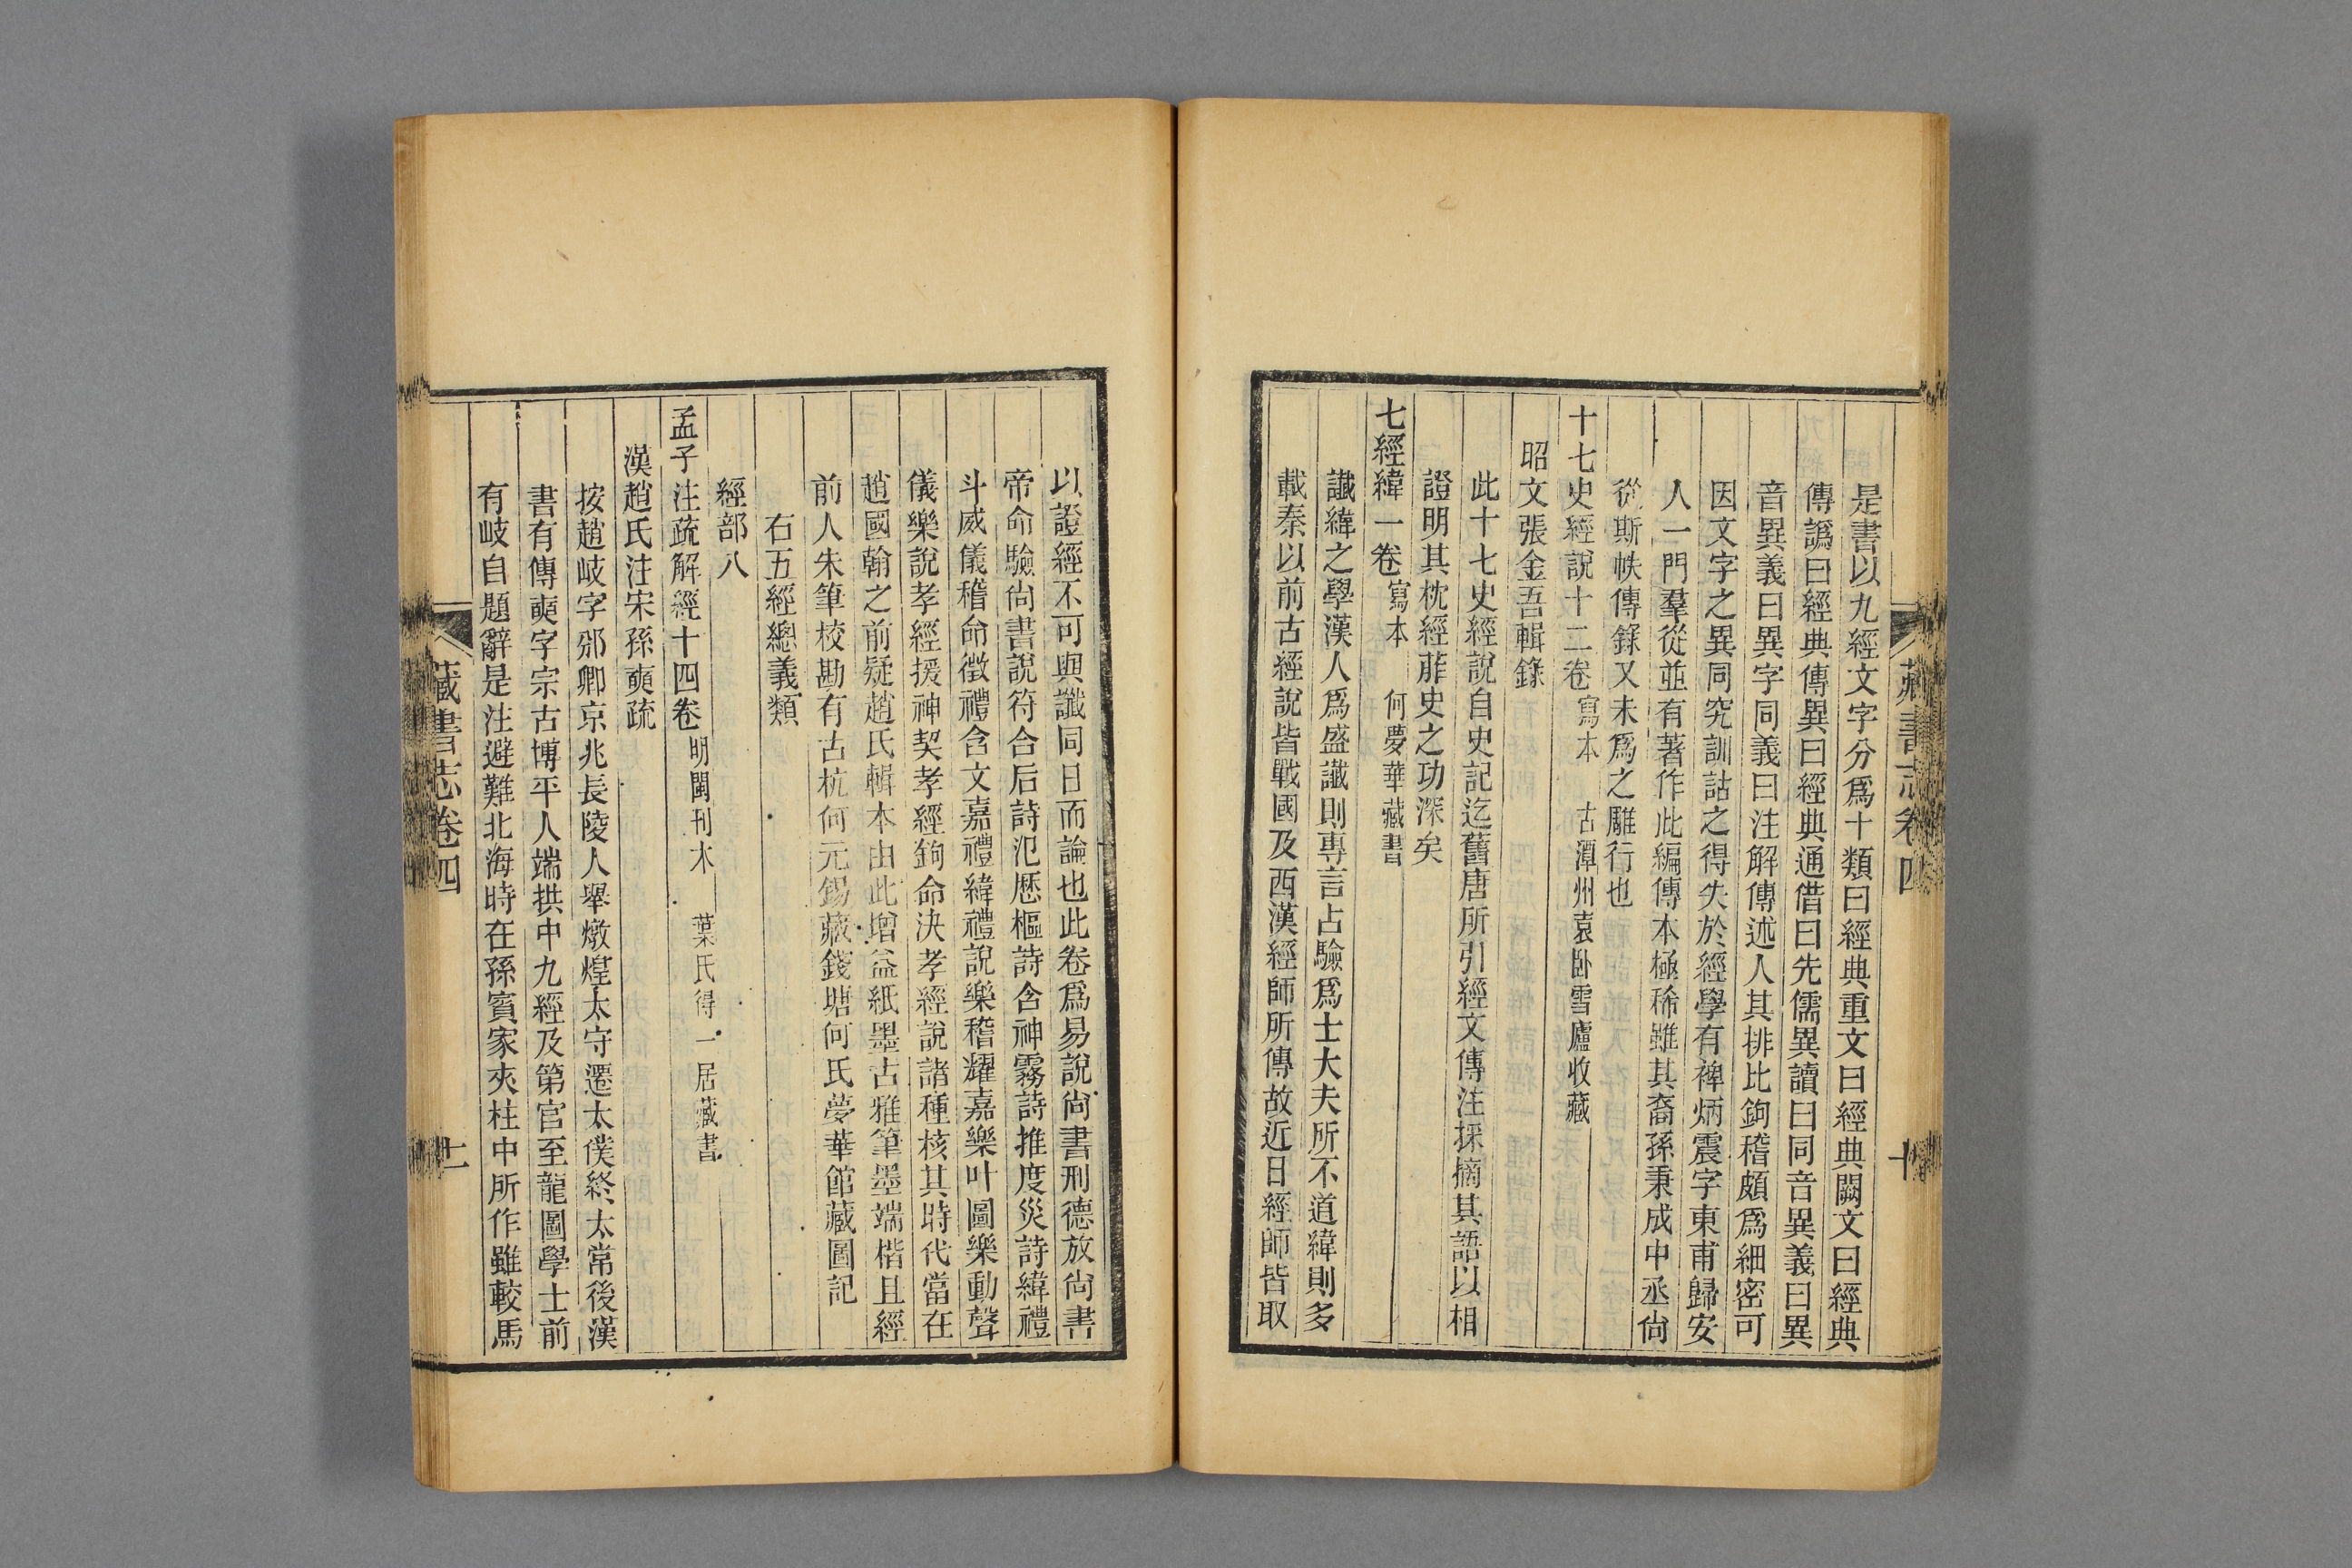 藏書志卷四
十
是書以九經文字分爲十類曰經典重文曰經典闕文曰經典
傳譌曰經典傳異曰經典通借曰先儒異讀曰同音異義曰異
音異義曰異字同義曰注解傳述人其排比鉤稽頗爲細密可
因文字之異同究訓詁之得失於經學有裨炳震字東甫歸安
人一門羣從並有著作此編傳本極稀雖其裔孫秉成中丞尙
從斯帙傳錄又未爲之雕行也
十七史經說十二卷 寫本 古潭州袁卧雪廬收藏
昭文張金吾輯錄
此十七史經說自史記迄舊唐所引經文傳注採摘其語以相
證明其枕經葄史之功深矣
七經緯一卷 寫本 何夢華藏書
讖緯之學漢人爲盛讖則專言占驗爲士大夫所不道緯則多
載秦以前古經說皆戰國及西漢經師所傳故近日經師皆取
以證經不可與讖同日而論也此卷爲易說尙書刑德放尙書
帝命驗尙書說符合后詩氾歷樞詩含神霧詩推度災詩緯禮
斗威儀稽命徵禮含文嘉禮緯禮說樂稽耀嘉樂叶圖樂動聲
儀樂說孝經援神契孝經鉤命決孝經說諸種核其時代當在
趙國翰之前疑趙氏輯本由此增益紙墨古雅筆墨端楷且經
前人朱筆校勘有古杭何元錫藏錢塘何氏夢華館藏圖記
右五經總義類
經部八
孟子注疏解經十四卷 明閩刊本 葉氏得一居藏書
漢趙氏注宋孫奭疏
按趙岐字邠卿京兆長陵人舉燉煌太守遷太僕終太常後漢
書有傳奭字宗古博平人端拱中九經及第官至龍圖學士前
有岐自題辭是注避難北海時在孫賓家夾柱中所作雖較馬
藏書志卷四
十一